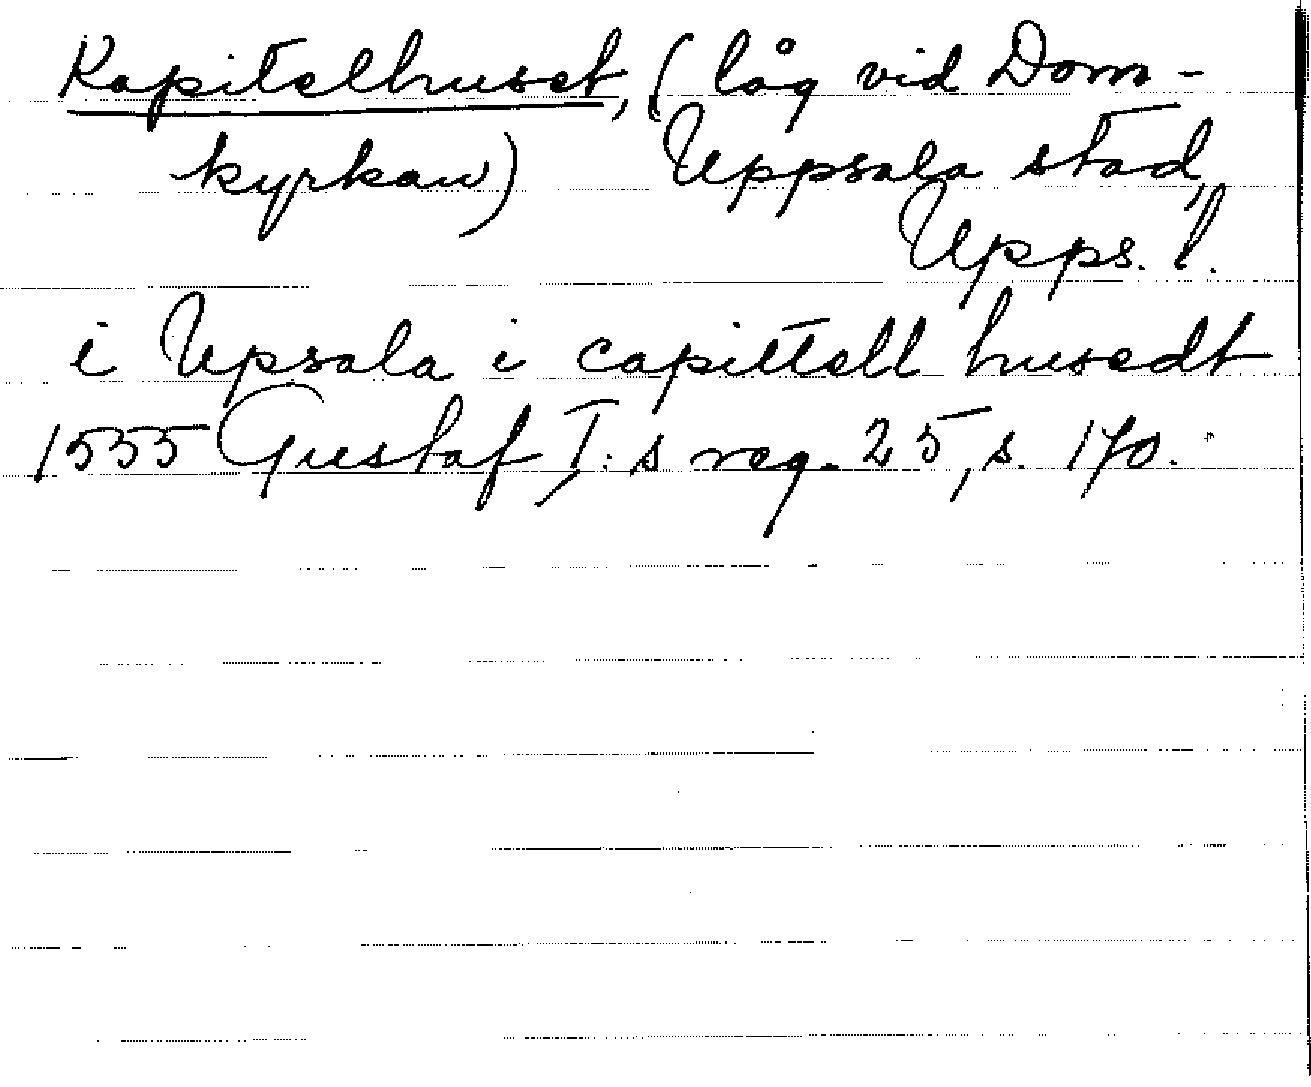 Kapitelhuset, (låg vid Dom-
kyrkan) Uppsala stad,
Upps. l.
i Upsala i capittell husedt
1555 Gustaf I:s reg. 25, s. 170.